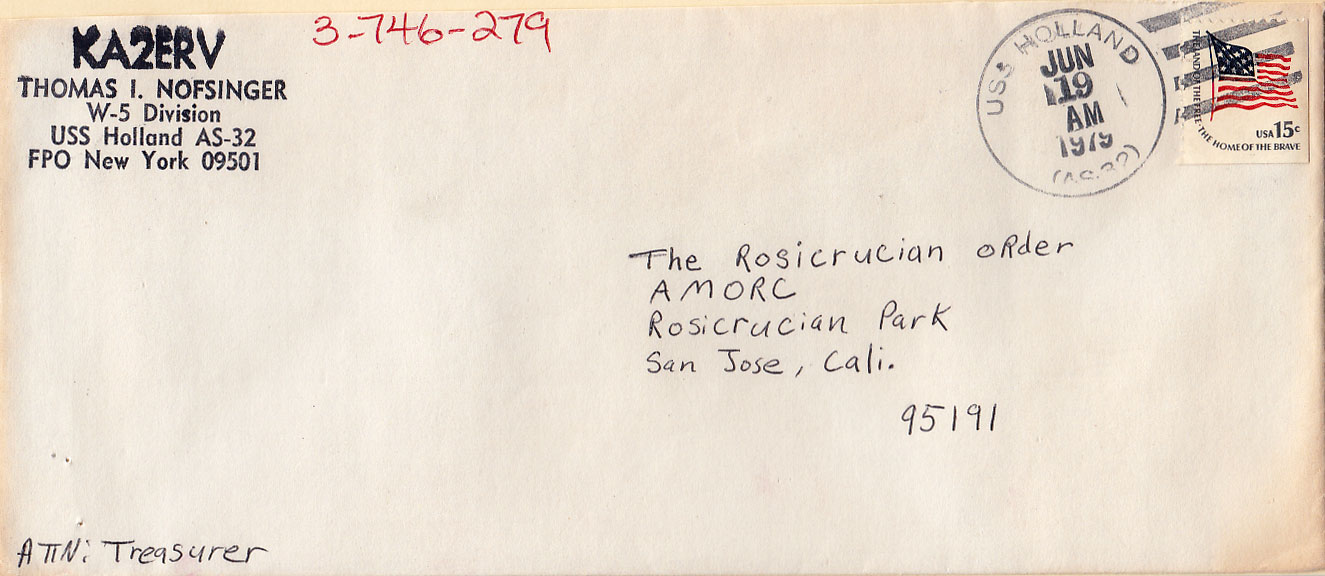 KA2ERV
THOMAS I. NOFSINGER
W-5 Division
USS Holland AS-32
FPO New York 09501
3-746-279
USS HOLLAND
JUN
19
AM
1979
(AS-32)
THE LAND OF THE FREE·THE HOME OF THE BRAVE
USA 15c
The Rosicrucian oRder
AMORC
Rosicrucian Park
San Jose, Cali.
95191
ATTN: Treasurer